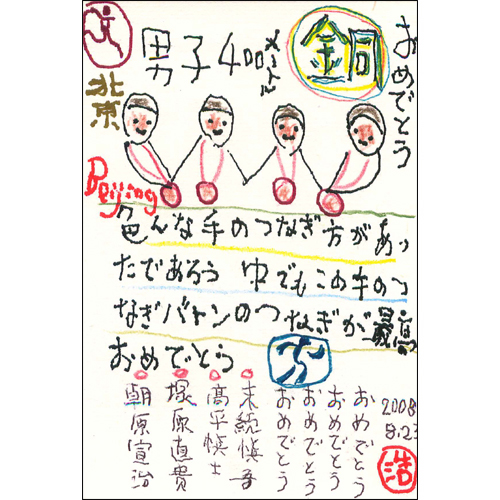 男子400メートル
銅
おめでとう
北京
Beijing
色んな手のつなぎ方があっ
たであろう 中でもこの手のつ
なぎバトンのつなぎが最高
おめでとう
朝原宣治
塚原直貴
高平慎士
末続慎吾
おめでとう
おめでとう
おめでとう
おめでとう
2008
8.23
浩